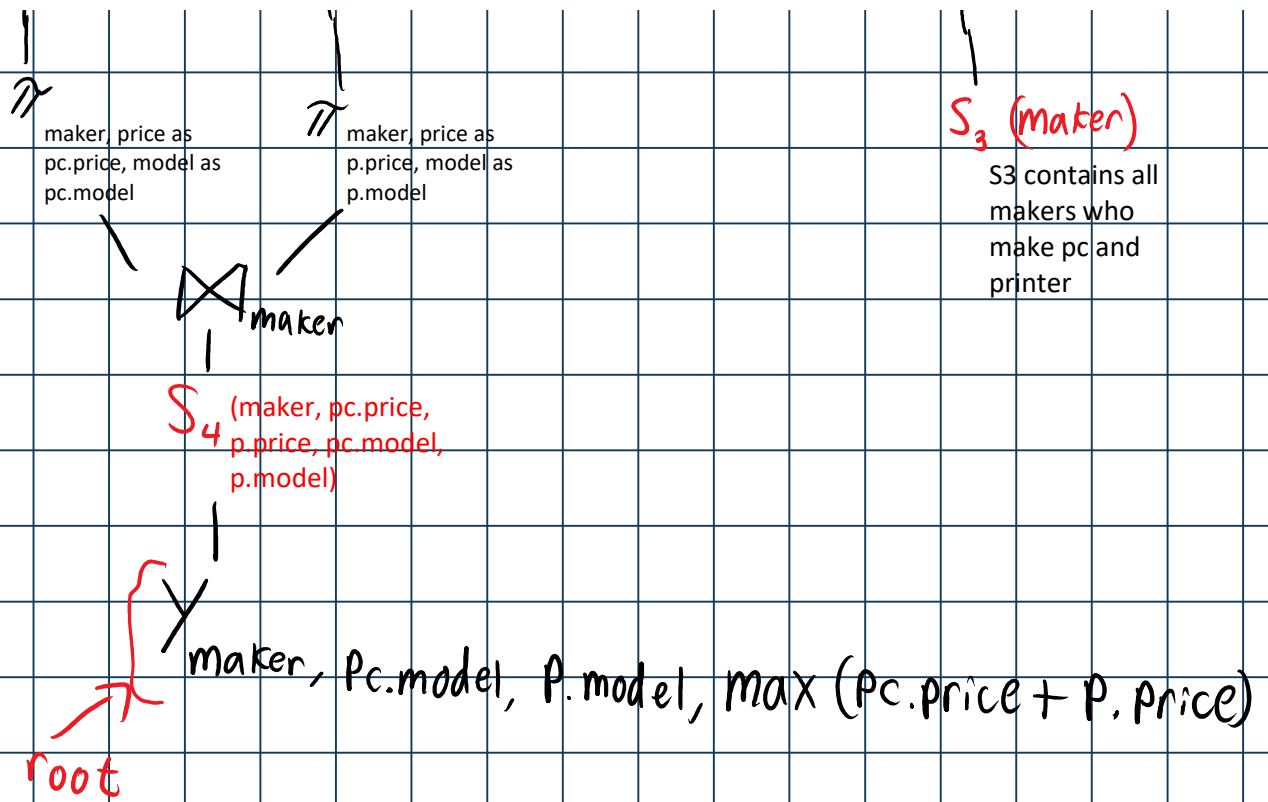 π
maker, price as
pc.price, model as
pc.model
π
maker, price as
p.price, model as
p.model
S3 (maker)
S3 contains all
makers who
make pc and
printer
⋈ maker
S4 (maker, pc.price,
p.price, pc.model,
p.model)
γ maker, Pc.model, P.model, max (Pc.price + P.price)
root